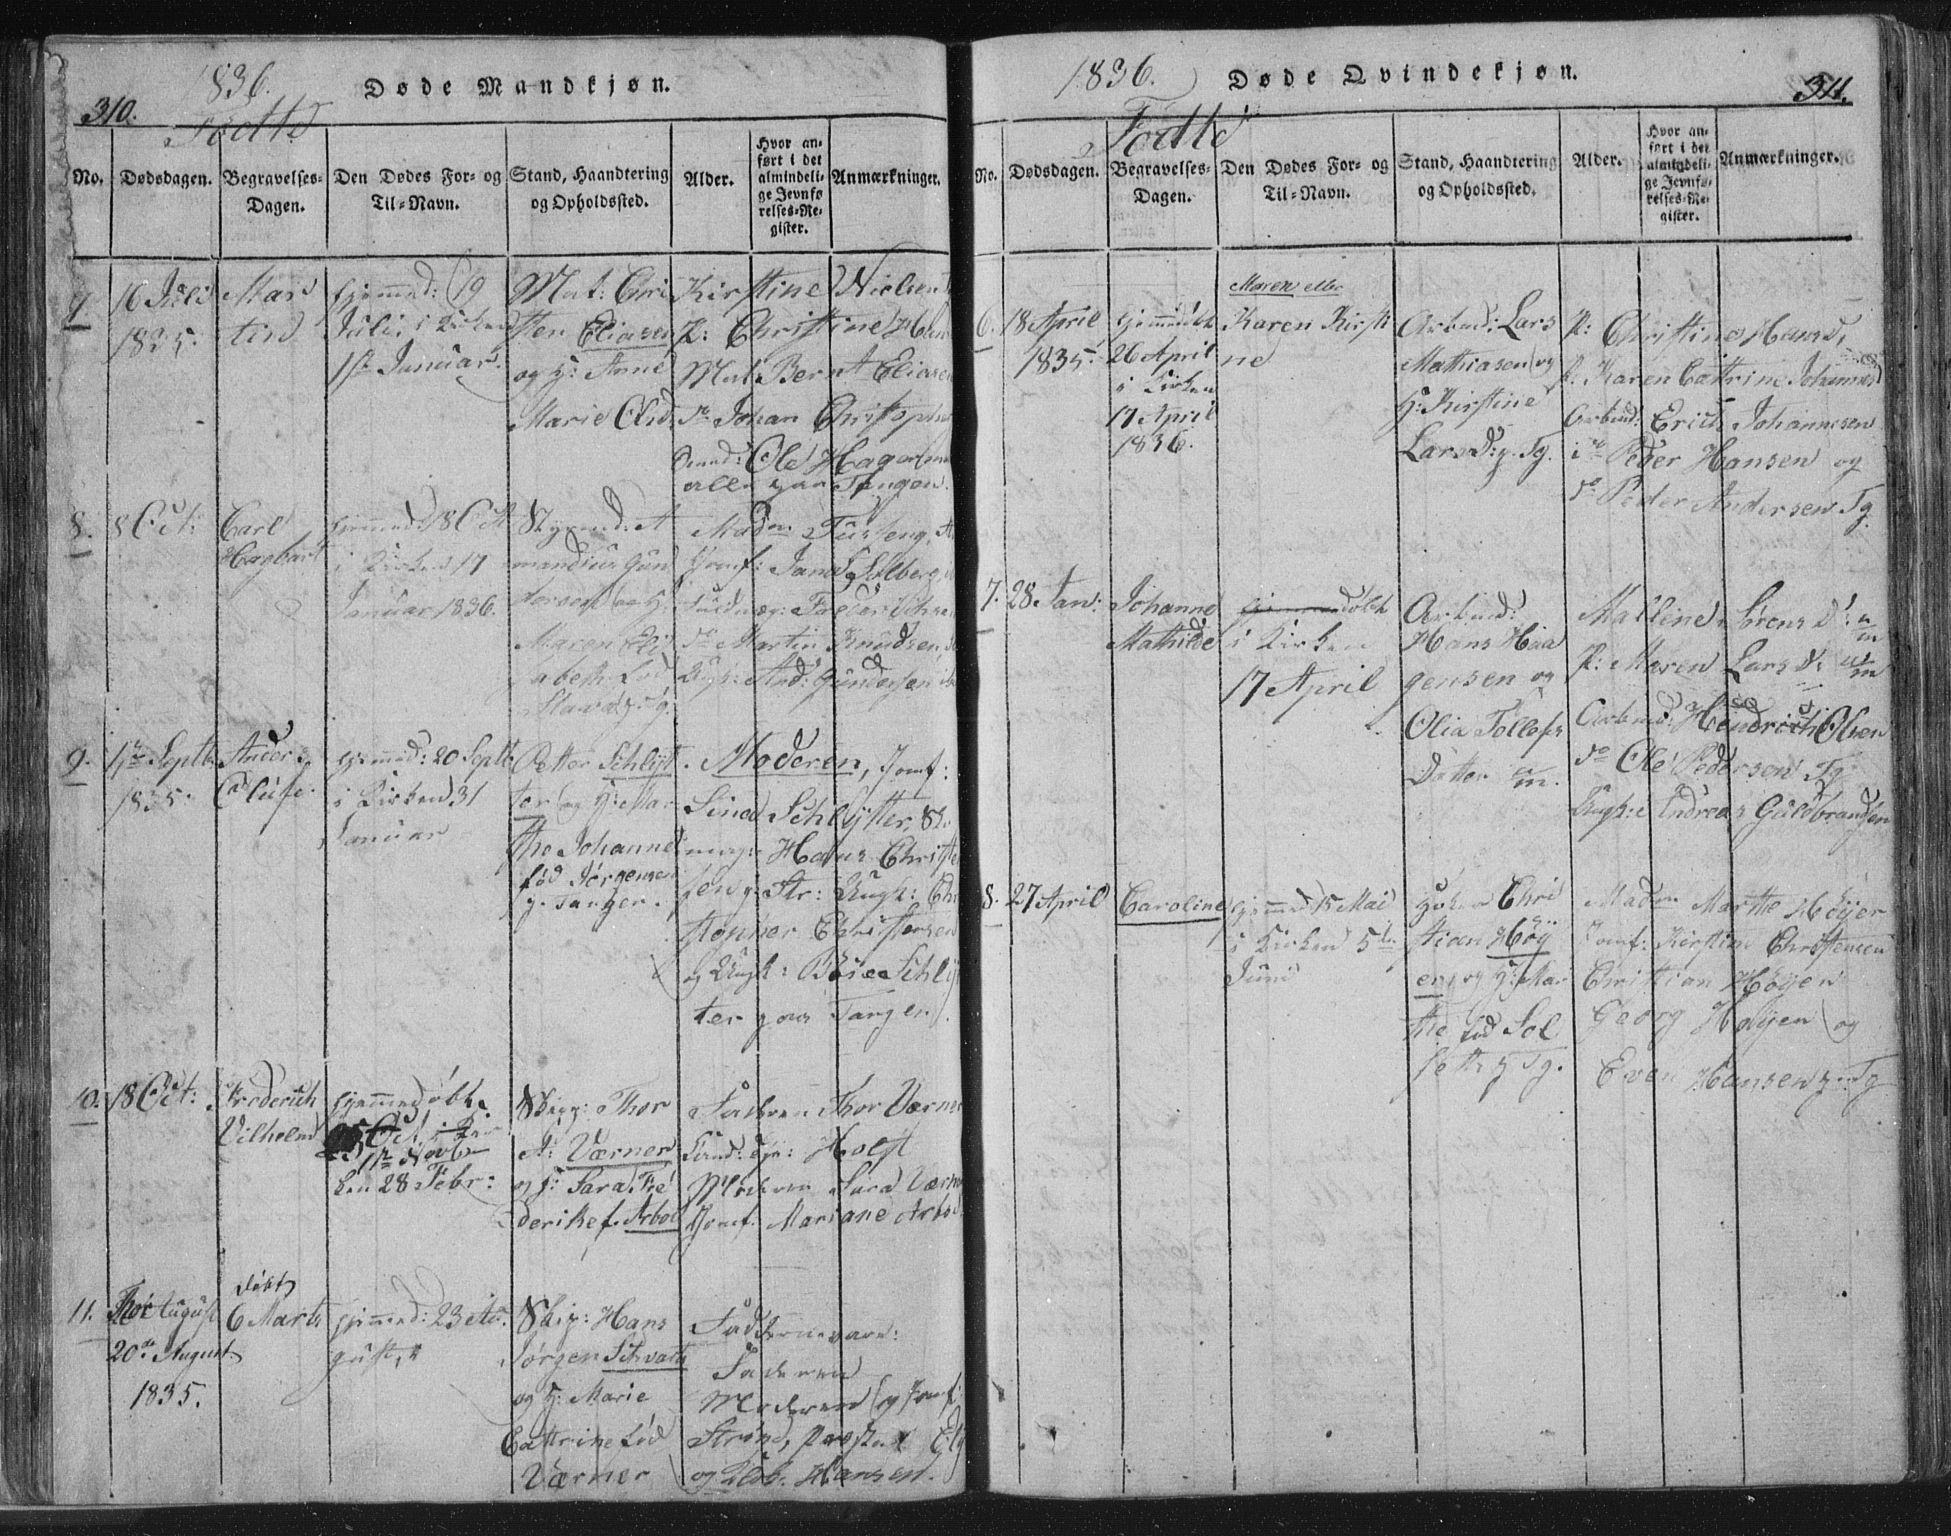 1836.
Døde Mandkjøn.
310.
Fødte
No.
Dødsdagen.
Begravelses-
Dagen.
Den Dødes For- og
Til-Navn.
Stand, Haandtering
og Opholdssted.
Alder.
Hvor an-
ført i det
almindeli-
ge Jevnfø
relses-Re-
gister.
Anmærkninger.
16 Juli
1835.
Mar
tin
hjemmed: 19
Juli, i Kirken
1ste Januar.
Mat: Chri
sten Eliasen
og H: Anne
Marie Olsd.
Kirstine Nielsen
P: Christine
Mat Bernt Eliasen
do Johan Christopher
Ole Hagen
alle paa Tangen.
8.
8 Oct:
Carl
Hagbart
hjemmed 18 Oct
i Kirken 17
Januar 1836.
Styrmd: A
mandius Gun
dersen og H:
Maren Eli
sabeth
Madm
Jomf:
do Martin Knudsen
Ungk: And: Gundersen
9.
1ste Septb
1835.
Anders
hjemmed: 20 Septb
i Kirken 31
Januar
Petter Schlyt
ter og H: Mar
the Johanne
fød Jørgensen
p. Tangen.
Moderen, Jomf:
Sine Schlytter, St.
Hans Christe
sen p: Str: Ungk: Chri
stopher Christensen
og Ungk: Schlyt
ter paa Tangen.
10.
18 Oct:
Frederich
Vilhelm
hjemmedøbt
ken 28 Febr:
Skipp: Thor
A: Værner
og H: Sara Fre
derike f. Arbo
Faderen Thor Værner
Holst
Moderen Sara Værner
Jomf. Mariane Arbo
11.
August
20de August
1835.
døbt
6 Marts
hjemmed: 23 Au
gust,
Skip: Hans
Jørgen Schvartz
og H: Marie
Cattrine fød
Værner
Fadderne vare:
Faderen
Moderen og Jomf:
og Hansen.
1836.
Døde Qvindekjøn.
311.
Fødte
No.
Dødsdagen.
Begravelses-
Dagen.
Den Dødes For- og
Til-Navn.
Stand, Haandtering
og Opholdssted.
Alder.
Hvor an-
ført i det
almindeli-
ge Jevnfø-
relses-Re-
gister.
Anmærkninger.
6.
18 April
1835.
hjemmedøbt
26 April
i Kirken
17 April
1836.
Maren eller
Karen Kirsti
ne
Arbmd: Lars
Mathiasen og
H: Kirstine
Larsd: p. Tg.
P: Christine Hansd,
P. Karen Cathrine Johannesd
Arbmd: Erich Johannesen
Peder Hansen og
do Peder Andersen Tg.
7.
28 Jan:
Johanne
Mathilde
hjemmedøbt
i Kirken
17 April
Arbmd:
Hans Haa
gensen og
Olia Tollefs
Datter
Mallene Sørens D:
P: Maren Lars D:
Arbmd: Hendrich Olsen
do Ole Pedersen Tg
Ungk: Andreas Guldbrandsen
8.
27 April
Caroline
hjemmed 15 Mai
i Kirken 5te
Juni
Chri
stian Høy
er og H: Mar
the fød Sol
p Tg.
Madm Marthe Høyer
Jomf: Kirstine Christensen
Christian Høyer
Georg Høyer og
Even Hansen p. Tg